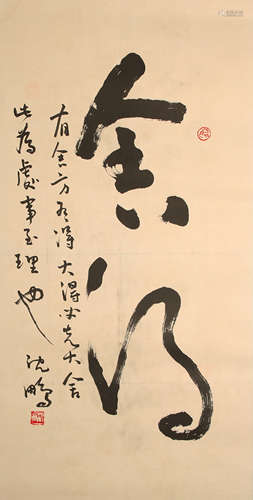 舍得
有舍方有得 大得必先大舍
此為處事至理也
沈鵬